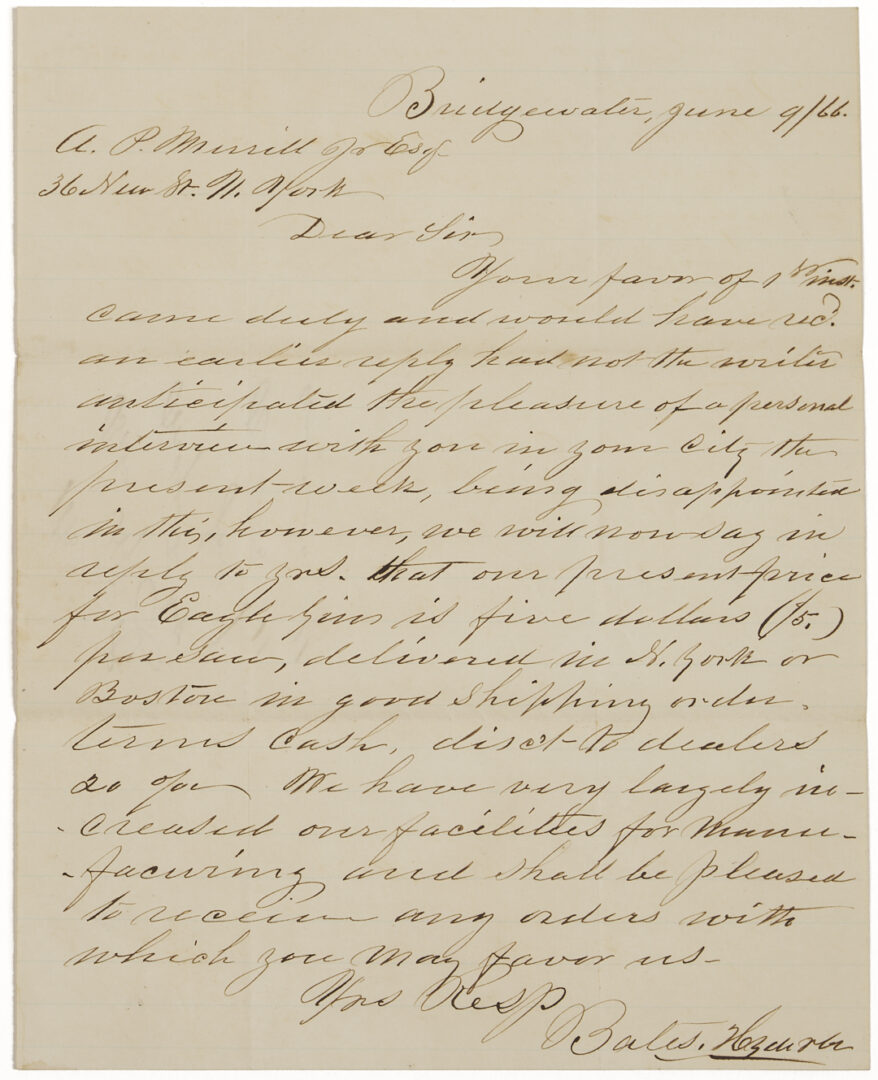 Bridgewater, June 9/66.
A. P. Merrill Jr Esq
36 New St. N. York
Dear Sir
Your favor of 1st inst.
came duly and would have recd.
an earlier reply had not the writer
anticipated the pleasure of a personal
interview with you in your City the
present week, being disappointed
in this, however, we will now say in
reply to yrs. that our present price
for Eagle Gins is five dollars ($5.)
per saw, delivered in N. York or
Boston in good shipping order.
terms cash, disct to dealers
20 o/o We have very largely in-
-creased our facilities for manu-
-facuring and shall be pleased
to receive any orders with
which you may favor us-
Yrs Resp
Bates, Hyde & Co